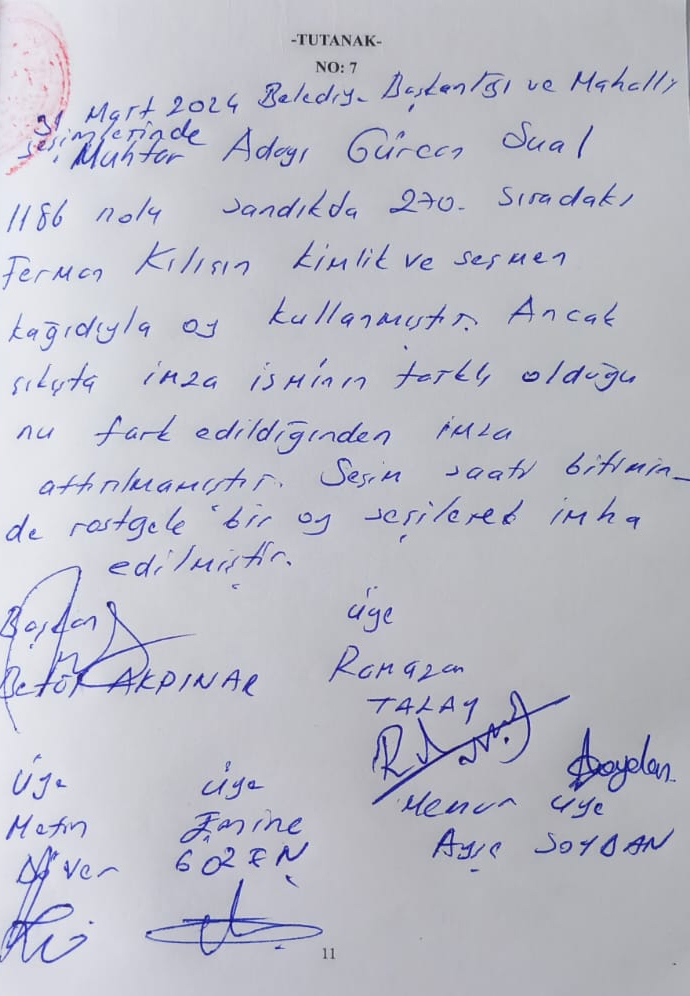 -TUTANAK-
NO: 7
31 Mart 2024 Belediye Başkanlığı ve Mahalli
seçimlerinde
Muhtar Adayı Gürcan Sual
1186 nolu sandıkda 270. sıradaki
Ferman Kılıçın kimlik ve seçmen
kağıdıyla oy kullanmıştır. Ancak
çıkışta imza isminin farklı olduğu
nu fark edildiğinden imza
attırılmamıştır. Seçim saati bitimin-
de rastgele bir oy seçilerek imha
edilmiştir.
Başkan
Betül AKPINAR
Üye
Ramazan
TALAY
Üye
Metin
Döver
Üye
Emine
GÖZEN
Soydan
Memur üye
Ayşe SOYDAN
11